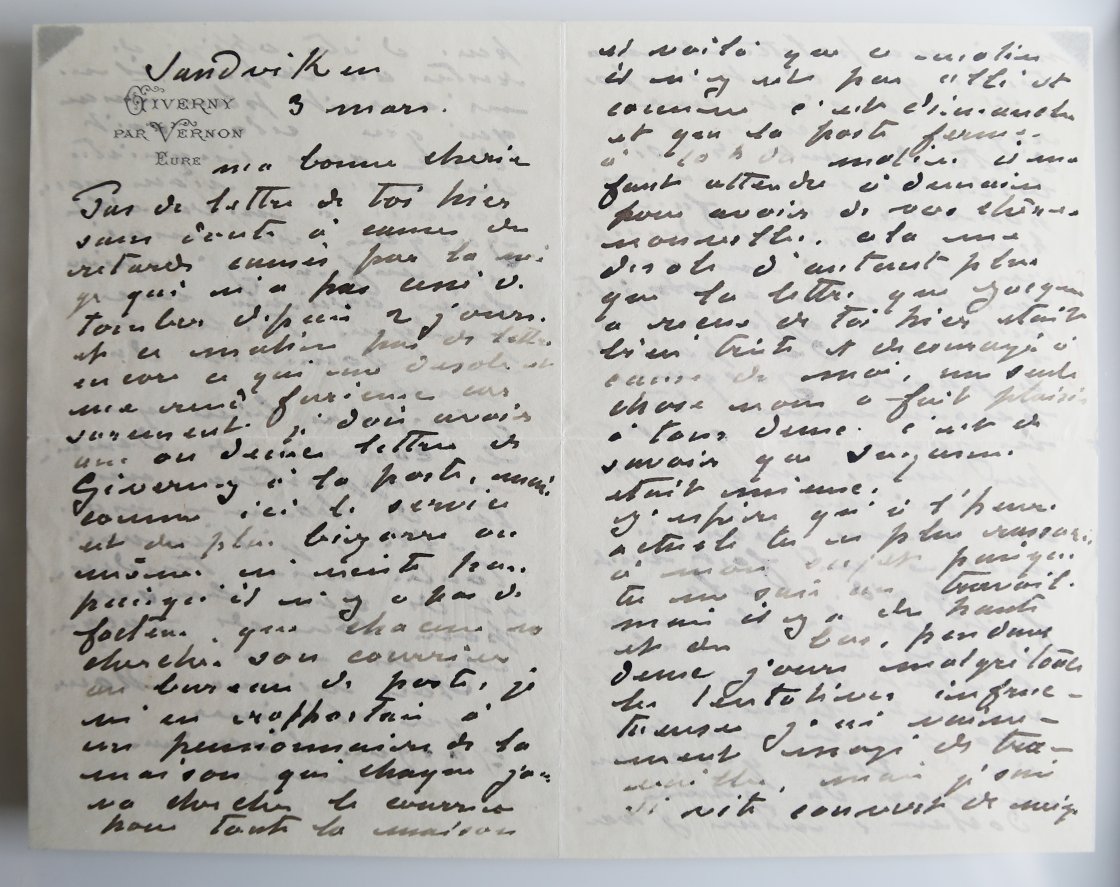 Sandviken
GIVERNY
PAR VERNON
EURE
3 mars.
ma bonne cherie
Pas de lettre de toi hier
sans doute à cause des
retards causés par la nei
ge qui n'a pas cessé de
tomber depuis 2 jours.
et ce matin pas de lettre
encore ce qui me desole et
me rend furieux car
surement je dois avoir
une ou deux lettre de
Giverny à la poste, mais
comme ici le service
est des plus bizarre ou
même n'existe pas
puisqu'il n'y a pas de
facteur, que chacun va
chercher son courrier
au bureau de poste, je
m'en rapportais à
un pensionnaire de la
maison qui chaque jour
va chercher le courrier
pour toute la maison
et voilà que ce matin
il n'y est pas allé et
comme c'est dimanche
et que la poste ferme
à 10h du matin il me
faut attendre à demain
pour avoir de vos chères
nouvelles. cela me
desole d'autant plus
que la lettre que Jacques
a reçue de toi hier était
bien triste et decouragée à
cause de moi, une seule
chose nous a fait plaisir
à tous deux. c'est de
savoir que Suzanne
était mieux.
j'espère qu'à l'heure
actuelle tu es plus rassurée
à mon sujet puisque
tu me sais au travail.
mais il y a des hauts
et des bas, pendant
deux jours malgré toutes
les tentatives infruc-
tueuses j'ai vaine-
ment essayé de tra-
vailler, mais j'étais
si vite couvert de neige